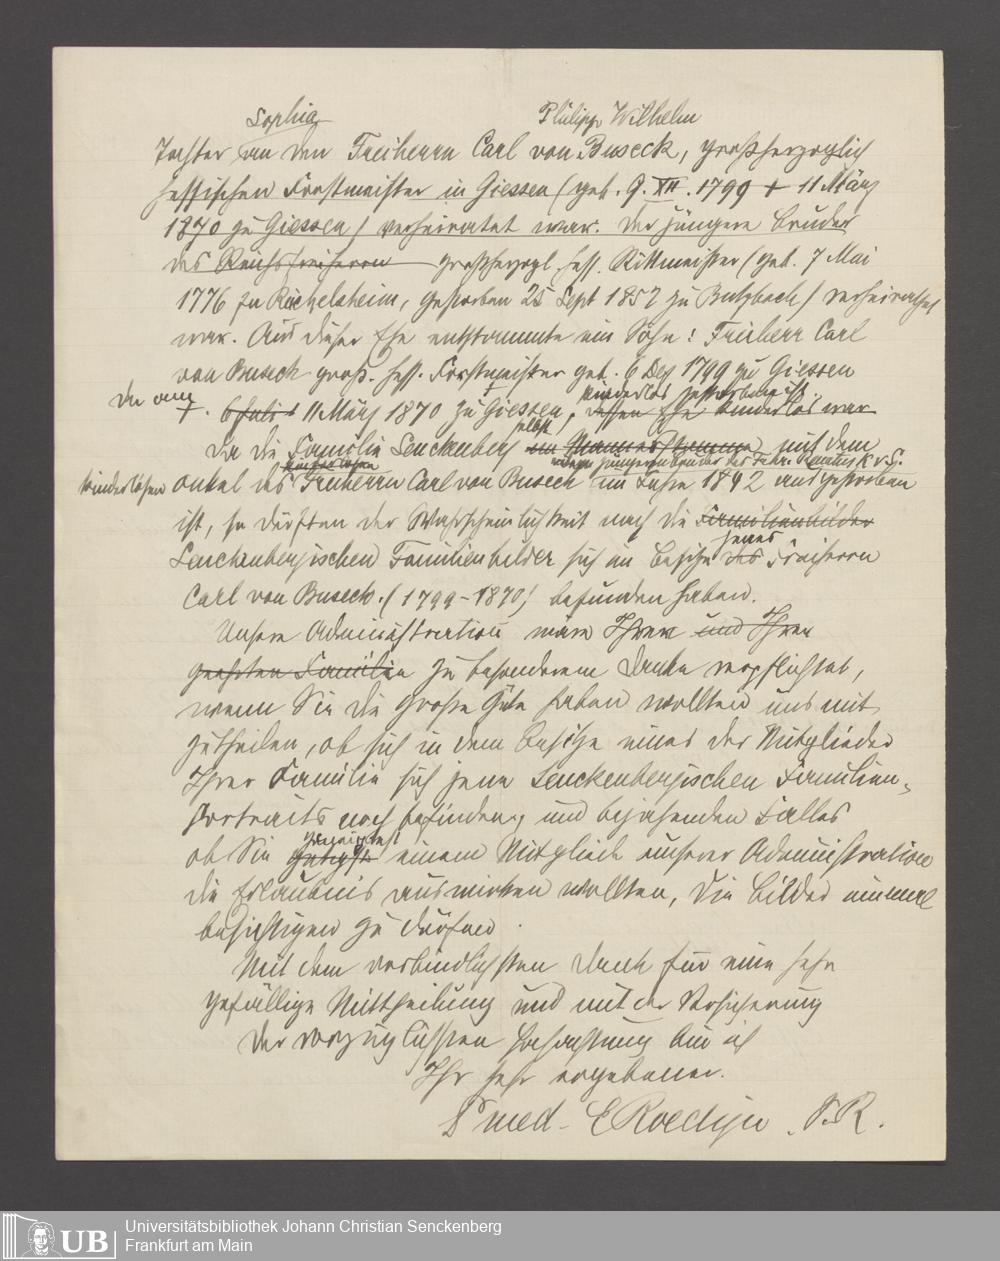 Sophia Philipp Wilhelm
Tochter an den Freiherrn Carl von Buseck, großherzoglich
hessischen Forstmeister in Giessen (geb. 9. XII. 1799 + 11 März
1870 zu Giessen) verheiratet war. Der jüngere Bruder
des Reichsfreiherrn großherzogl. hess. Rittmeister (geb. 7 Mai
1776 zu Reichelsheim, gestorben 25 Sept 1857 zu Butzbach) verheirathet
war. Aus dieser Ehe entstammte ein Sohn: Freiherr Carl
von Buseck groß. hess. Forstmeister geb. 6 Dez 1799 zu Giessen
der am kinderlos gestorben ist.
†. 6 Juli 11 März 1870 zu Giessen, dessen Ehe kinderlos war
selbst
Da die Familie Senckenberg im Mannesstamme mit dem
dem jüngeren Bruder des Frhr. K v. S.
kinderlosen Onkel des Freiherrn Carl von Buseck im Jahre 1842 ausgestorben
ist, so dürften der Wahrscheinlichkeit nach die Familienbilder
jenes
Senckenbergischen Familienbilder sich im Besitze des Freiherrn
Carl von Buseck. (1799-1870) befunden haben.
Unsere Administration wäre Ihnen und Ihrer
geehrten Familie zu besonderem Danke verpflichtet,
wenn Sie die große Güte haben wollten uns mit
zutheilen, ob sich in dem Besitze eines der Mitglieder
Ihrer Familie sich jene Senckenbergischen Familien-
Portraits noch befinden, und bejahenden Falles
geneigtest
ob Sie gütigst einem Mitgliede unserer Administration
die Erlaubnis auswirken wollten, die Bilder einmal
besichtigen zu dürfen.
Mit dem verbindlichsten Dank für eine sehr
gefällige Mittheilung und mit der Versicherung
der vorzüglichsten Hochachtung bin ich
Ihr sehr ergebener.
Dr med. E Roediger. S.R.
UB
Universitätsbibliothek Johann Christian Senckenberg
Frankfurt am Main